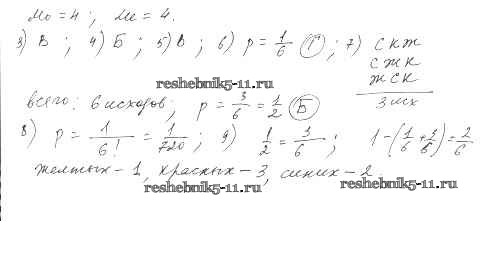 Мо = 4 ; Ме = 4.
3) В ; 4) Б ; 5) В ; 6) p = 1/6 (Г) ; 7) СКЖ
СЖК
ЖСК
reshebnik5-11.ru
всего: 6 исходов ; p = 3/6 = 1/2 (Б) 3 исх
8) p = 1/6! = 1/720 ; 9) 1/2 = 3/6 ; 1-(1/6+3/6)=2/6
желтых - 1, красных - 3, синих - 2
reshebnik5-11.ru reshebnik5-11.ru